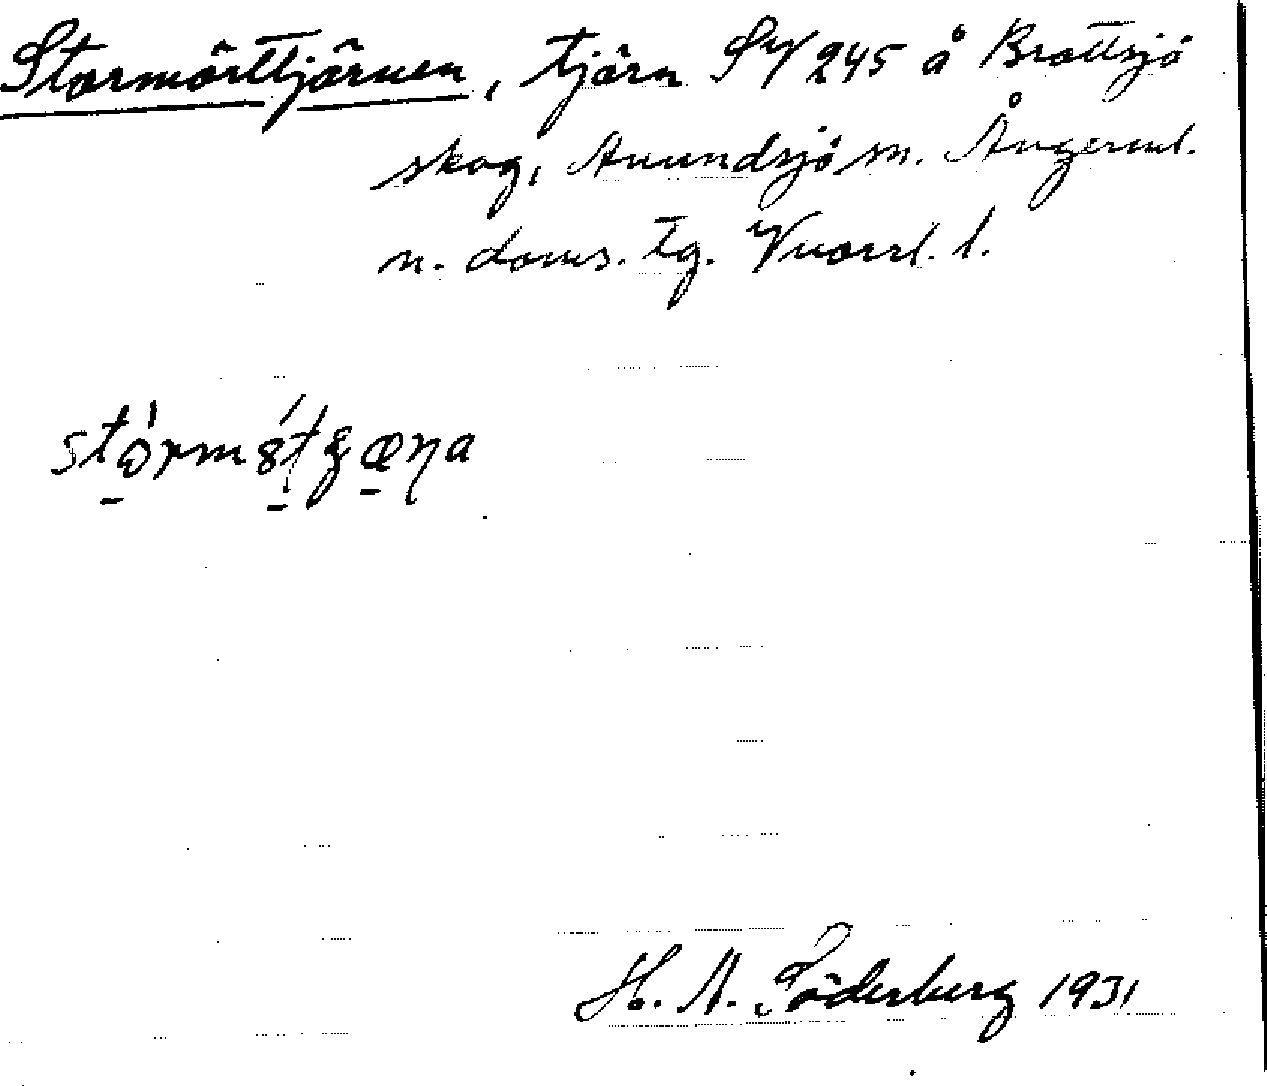 Stormörttjärnen, tjärn SV/245 å Brattsjö
skog, Anundsjö sn. Ångerml.
n. doms. tg. Vnorrl. l.
H. A. Söderberg 1931